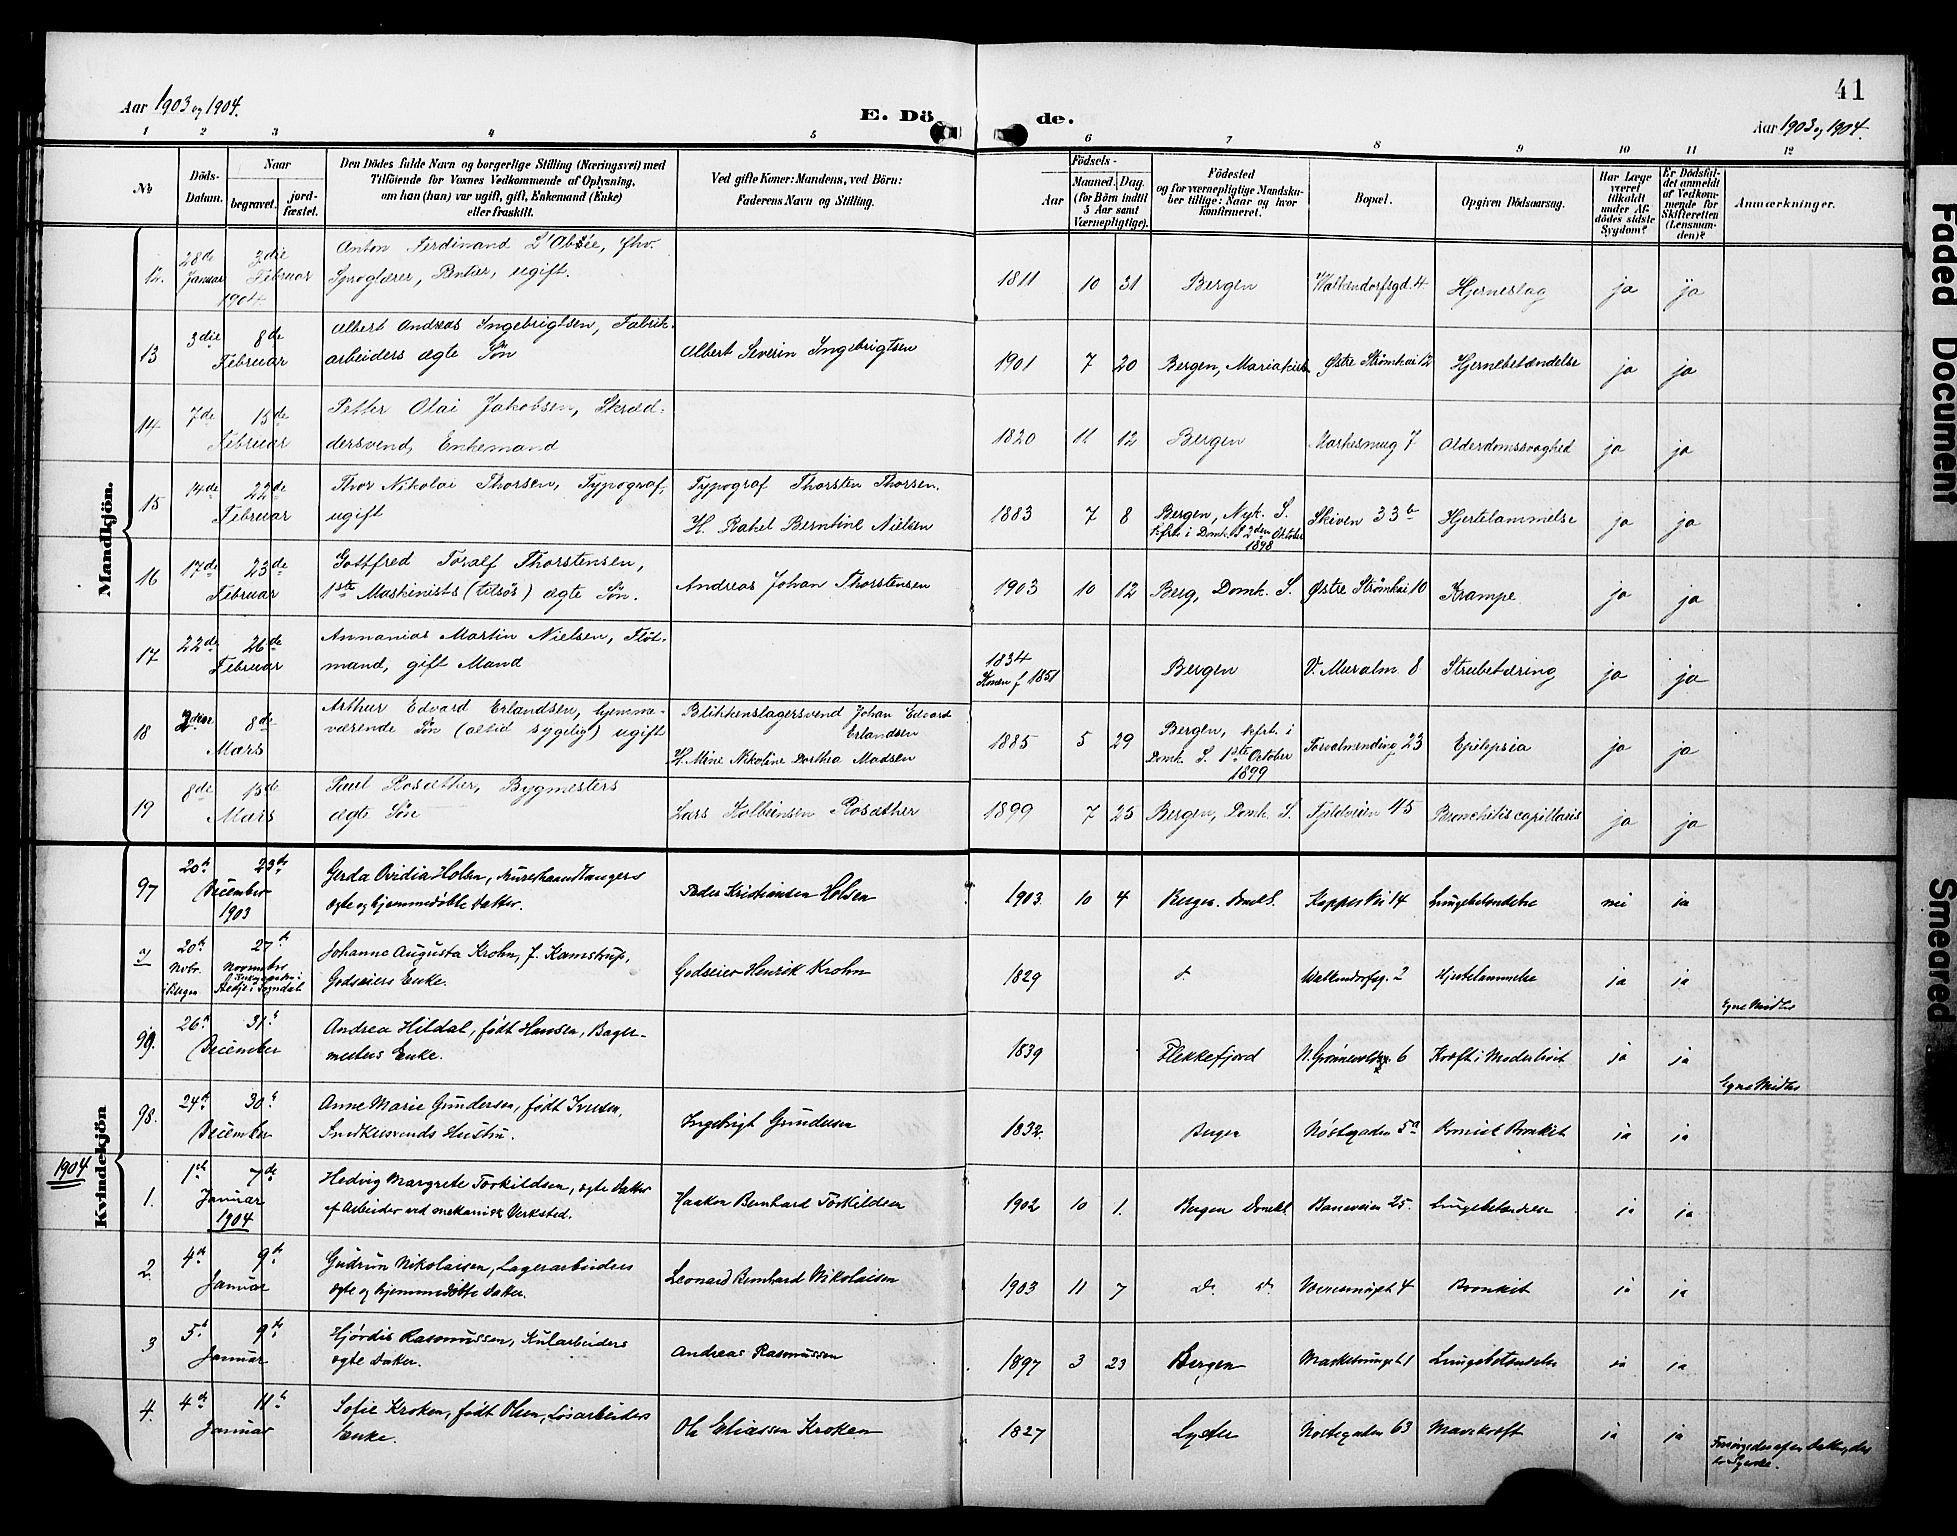 41
Aar 1903 og 1904.
E. Dö de.
Aar 1903 og 1904.
1 2 3 4 5 6 7 8 9 10 11 12
No
Döds-
Datum.
Naar
begravet.
jord-
fæstet.
Den Dödes fulde Navn og borgerlige Stilling (Næringsvei) med
Tilföiende for Voxnes Vedkommende af Oplysning,
om han (hun) var ugift, gift, Enkemand (Enke)
eller fraskilt.
Ved gifte Koner: Mandens, ved Börn:
Faderens Navn og Stilling.
Födsels-
Aar
Maaned. Dag.
(for Börn indtil
5 Aar samt
Værnepligtige).
Födested
og for værnepligtige Mandska-
ber tillige: Naar og hvor
konfirmeret.
Bopæl.
Opgiven Dödsaarsag.
Har Læge
været
tilkaldt
under Af-
dödes sidste
Sygdom?
Er Dödsfal-
det anmeldt
af Vedkom-
mende for
Skifteretten
(Lensman-
den)?
Anmærkninger.
Mandkjön.
12. 28de Januar 3die Februar 1904 Anton Ferdinand L'Abée, fhv.
Sproglærer, Rentier, ugift.
1811 10 31 Bergen Walkendorfsgd. 4 Hjerneslag ja ja
13 3die 8de Februar Albert Andreas Ingebrigtsen, Fabrik-
arbeiders ægte Søn Albert Severin Ingebrigtsen
1901 7 20 Bergen, Mariakirk Østre Strømkai 12 Hjernebetændelse ja ja
14 7de 15de Februar Petter Olai Jakobsen, Skræd-
dersvend, Enkemand
1820 11 12 Bergen Markesmug 7 Alderdomssvaghed ja ja
15 14de 22de Februar Thor Nikolai Thorsen, Typograf,
ugift
Typograf Thorsten Thorsen.
H. Rakel Berntine Nielsen
1883 7 8 Bergen, Nyk. S.
kfrt. i Domk. S 2den Oktober
1898
Skiven 33 b Hjertelammelse ja ja
16 17de 23de Februar Gottfred Toralf Thorstensen,
1ste Maskinists (tilsøs) ægte Søn. Andreas Johan Thorstensen
1903 10 12 Berg, Domk. S. Østre Strømkai 10 Krampe ja ja
17 22de 26de Februar Annanias Martin Nielsen, Fløt-
mand, gift Mand
1834
Konen f 1851
Bergen V. Muralm. 8 Strubetæring ja ja
18 8de Mars Arthur Edvard Erlandsen, hjemme-
værende Søn (altid sygelig) ugift
Blikkenslagersvend Johan Edvard
Erlandsen
H. Mine Nikoline Dorthea Madsen
1885 5 29 Bergen, kfrt. i
Domk. S. 1ste October
1899
Torvalmending 23 Epilepsia ja ja
19 8de 15de Mars Paul Rosæther, Bygmesters
ægte Søn Lars Kolbeinsen Rosæther
1899 7 25 Bergen, Domk. S. Fjeldveien 45 Bronchitis capillaris ja ja
Kvindekjön
97 20de 23de December 1903 Gerda Ovidia Holsen, Murerhaandlangers
ægte og hjemmedøbte Datter. Peder Kristiansen Holsen
1903. 10 4 Bergen. Domk S. 14 Lungebetændelse nei ja
20de Novbr. i Bergen 27de November
Stedje i Sogndal Johanne Augusta Krohn, f. Kamstrup,
Godseiers Enke. Godseier Henrik Krohn
1829 Walkendorfsg. 2 Hjertelammelse ja ja Egne Midler
99. 26de 31te December Andrea Hildal, født Hansen, Bager-
mesters Enke.
1839 Flekkefjord N. Grønnevoldsg. 6 Kræft i Moderlivet ja ja Egne Midler
98. 24de 30te December Anne Marie Gundersen, født Iversen,
Snedkersvends Hustru. Ingebrigt Gundersen
1832. Bergen Nøstegaden 5a Kronisk Bronkit ja ja
1904
1. 1ste 7de Januar 1904 Hedvig Margrete Torkildsen, ægte Datter
af Arbeider ved mekanisk Verksted. Haakon Bernhard Torkildsen
1902 10 1. Bergen Domk S. Baneveien 25. Lungebetændelse ja ja
2. 4de 9de Januar Gudrun Nikolaisen, Lagerarbeiders
ægte og hjemmedøbte Datter. Leonard Bernhard Nikolaisen
1903 11 7 Do. do. 4 Bronkit ja ja
3 5te 9de Januar Hjørdis Rasmussen, Kularbeiders
ægte Datter. Andreas Rasmussen
1897 3 23 Bergen 1 Lungebetændelse ja ja
4. 4de 11te Januar Sofie Kroken, født Olsen, Løsarbeiders
Enke. Ole Eliassen Kroken
1827 Lyster Nøstegaden 63 Mavekræft ja ja Forsørgedes af en Datter, der
er Syerske.
Faded Document
Smeared